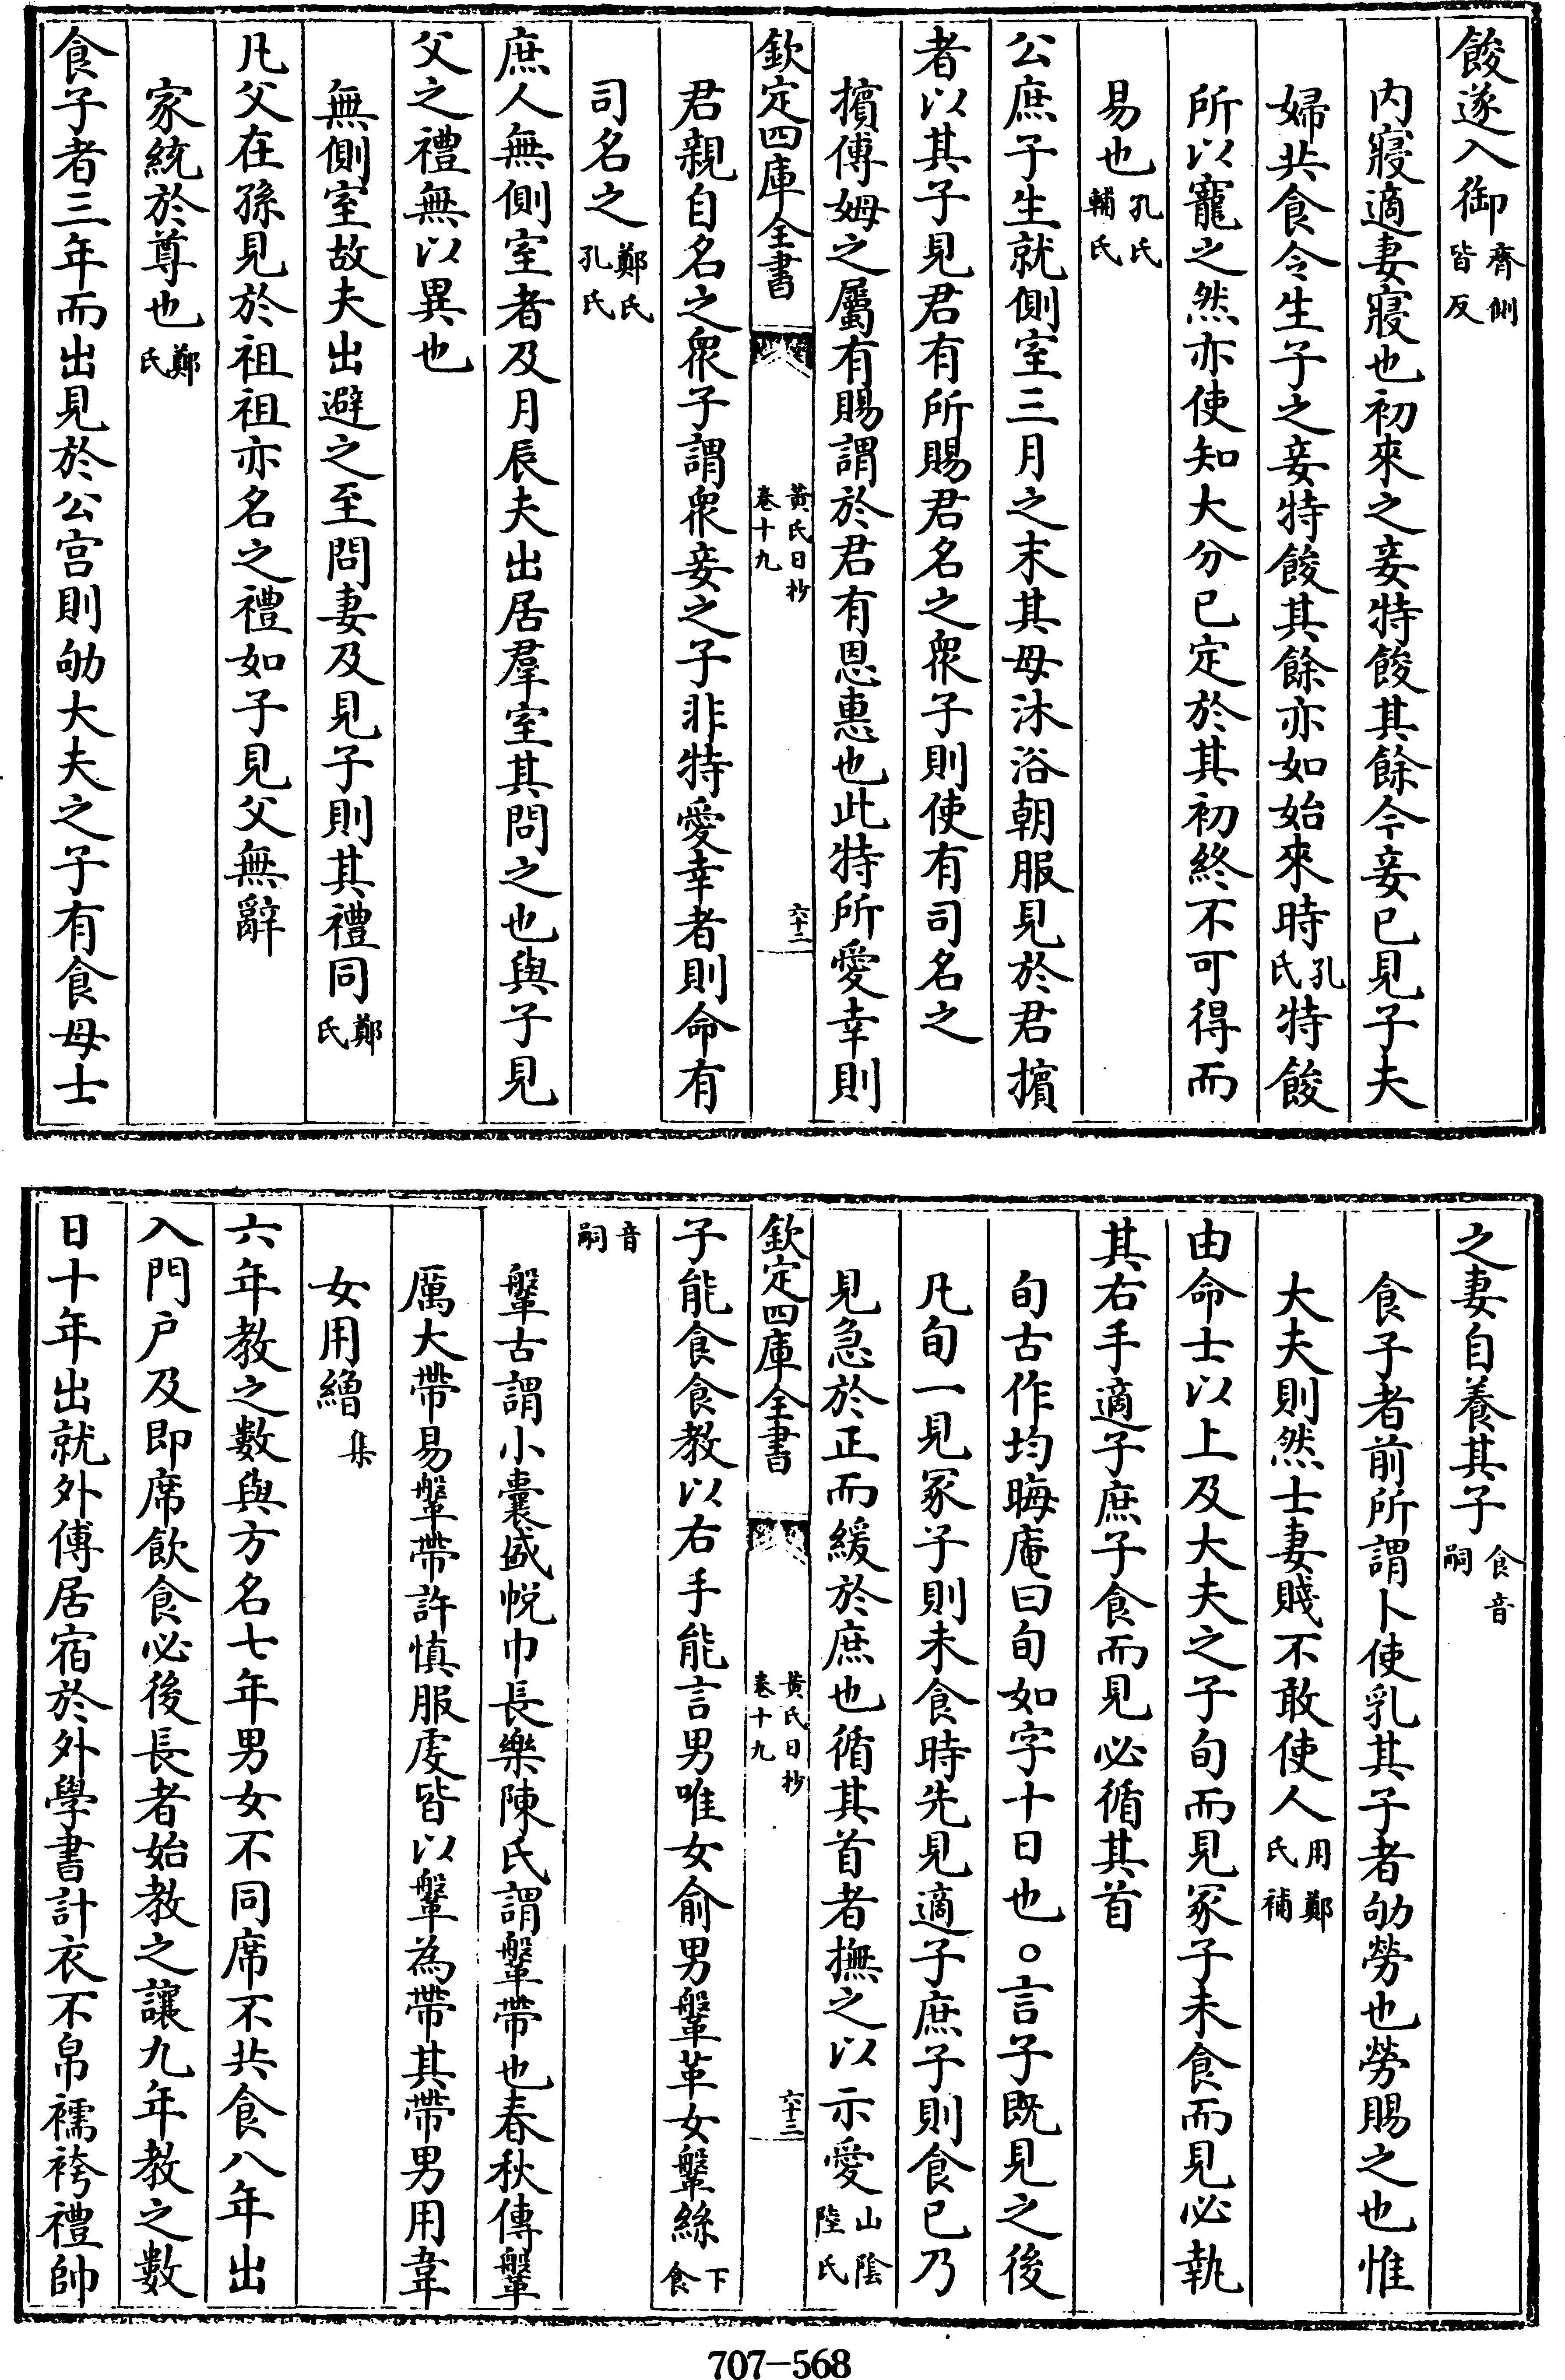 餕遂入御齊側皆反
内寢適妻寢也初來之妾特餕其餘今妾已見子夫
婦共食令生子之妾特餕其餘亦如始來時孔氏特餕
所以寵之然亦使知大分已定於其初終不可得而
易也孔氏輔氏
公庶子生就側室三月之末其母沐浴朝服見於君擯
者以其子見君有所賜君名之衆子則使有司名之
擯傅姆之屬有賜謂於君有恩惠也此特所愛幸則
欽定四庫全書 黃氏日抄卷十九 六十二
君親自名之衆子謂衆妾之子非特愛幸者則命有
司名之鄭氏孔氏
庶人無側室者及月辰夫出居羣室其問之也與子見
父之禮無以異也
無側室故夫出避之至問妻及見子則其禮同鄭氏
凡父在孫見於祖祖亦名之禮如子見父無辭
家統於尊也鄭氏
食子者三年而出見於公宫則劬大夫之子有食母士
之妻自養其子食音嗣
食子者前所謂卜使乳其子者劬勞也勞賜之也惟
大夫則然士妻賤不敢使人用鄭氏補
由命士以上及大夫之子旬而見冢子未食而見必執
其右手適子庶子食而見必循其首
旬古作均晦庵曰旬如字十日也○言子既見之後
凡旬一見冢子則未食時先見適子庶子則食已乃
見急於正而緩於庶也循其首者撫之以示愛山陰陸氏
欽定四庫全書 黃氏日抄卷十九 六十三
子能食食教以右手能言男唯女俞男鞶革女鞶絲下食
音嗣
鞶古謂小囊盛帨巾長樂陳氏謂鞶帶也春秋傳鞶
厲大帶易鞶帶許慎服虔皆以鞶為帶其帶男用韋
女用繒集
六年教之數與方名七年男女不同席不共食八年出
入門户及即席飲食必後長者始教之讓九年教之數
日十年出就外傅居宿於外學書計衣不帛襦袴禮帥
707-568